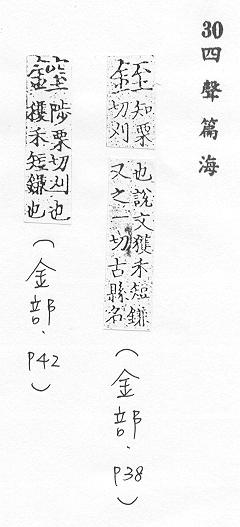 30四聲篇海
銍知栗
切刈
也說文獲禾短鎌
又之一切古縣名
(金部.P38)
陟栗切刈也
穫禾短鎌也
(金部.P42)